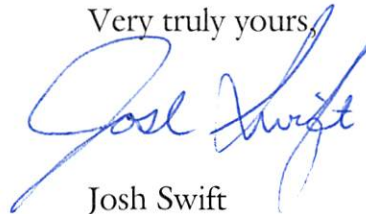 Very truly yours,
Josh Swift
Josh Swift